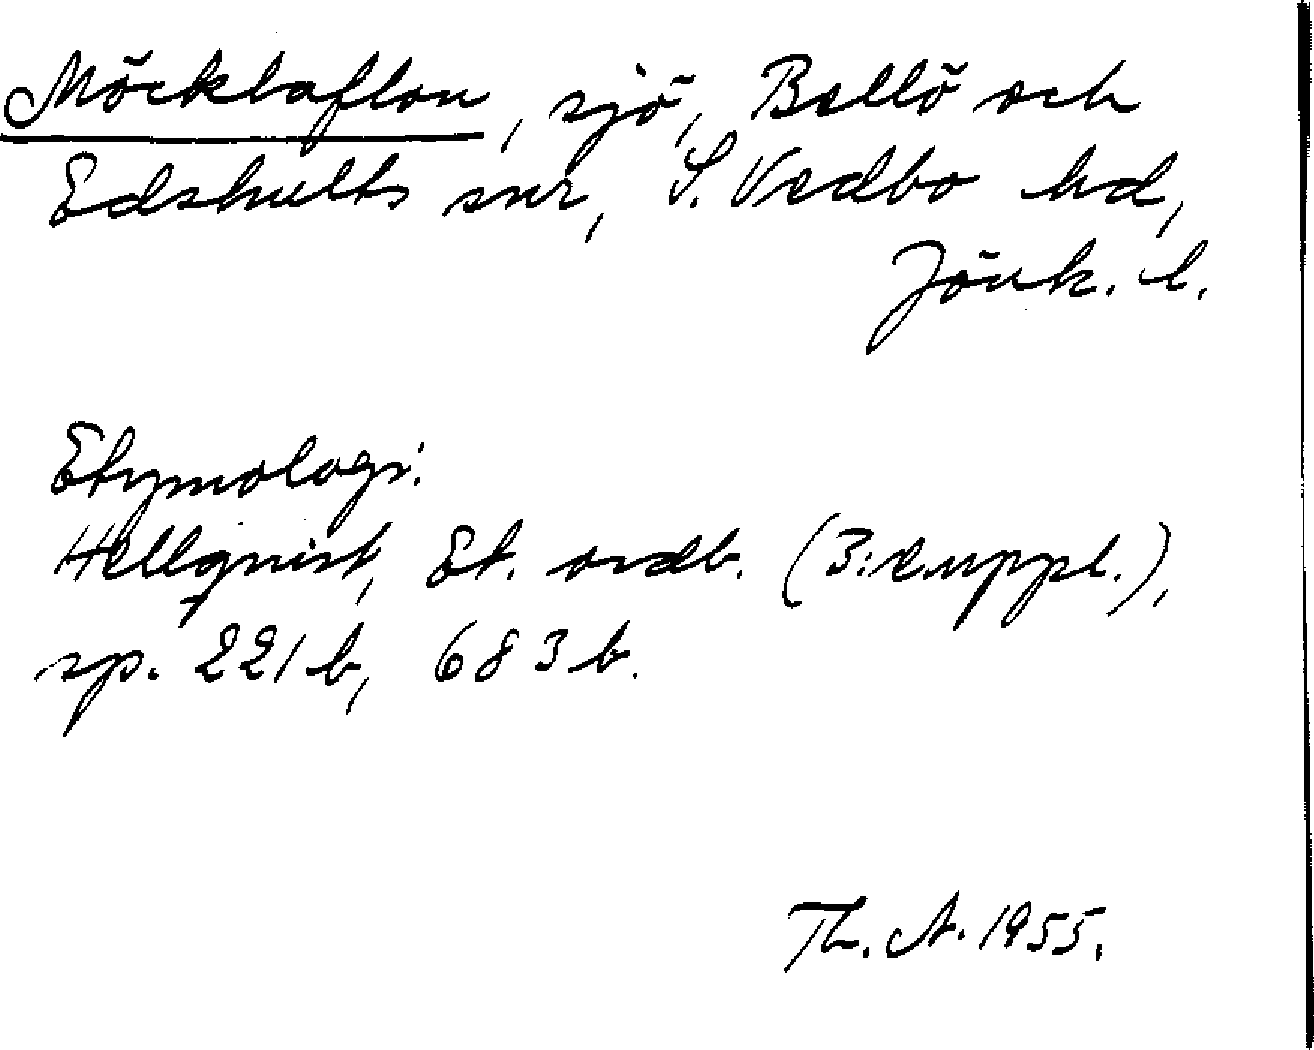 Möcklaflon, sjö, Bellö och
Edshults snr, S. Vedbo hd,
Jönk. l.
Etymologi:
Hellquist, Et. ordb. (3:e uppl.),
sp. 221 b, 683 b.
Th. A. 1955.